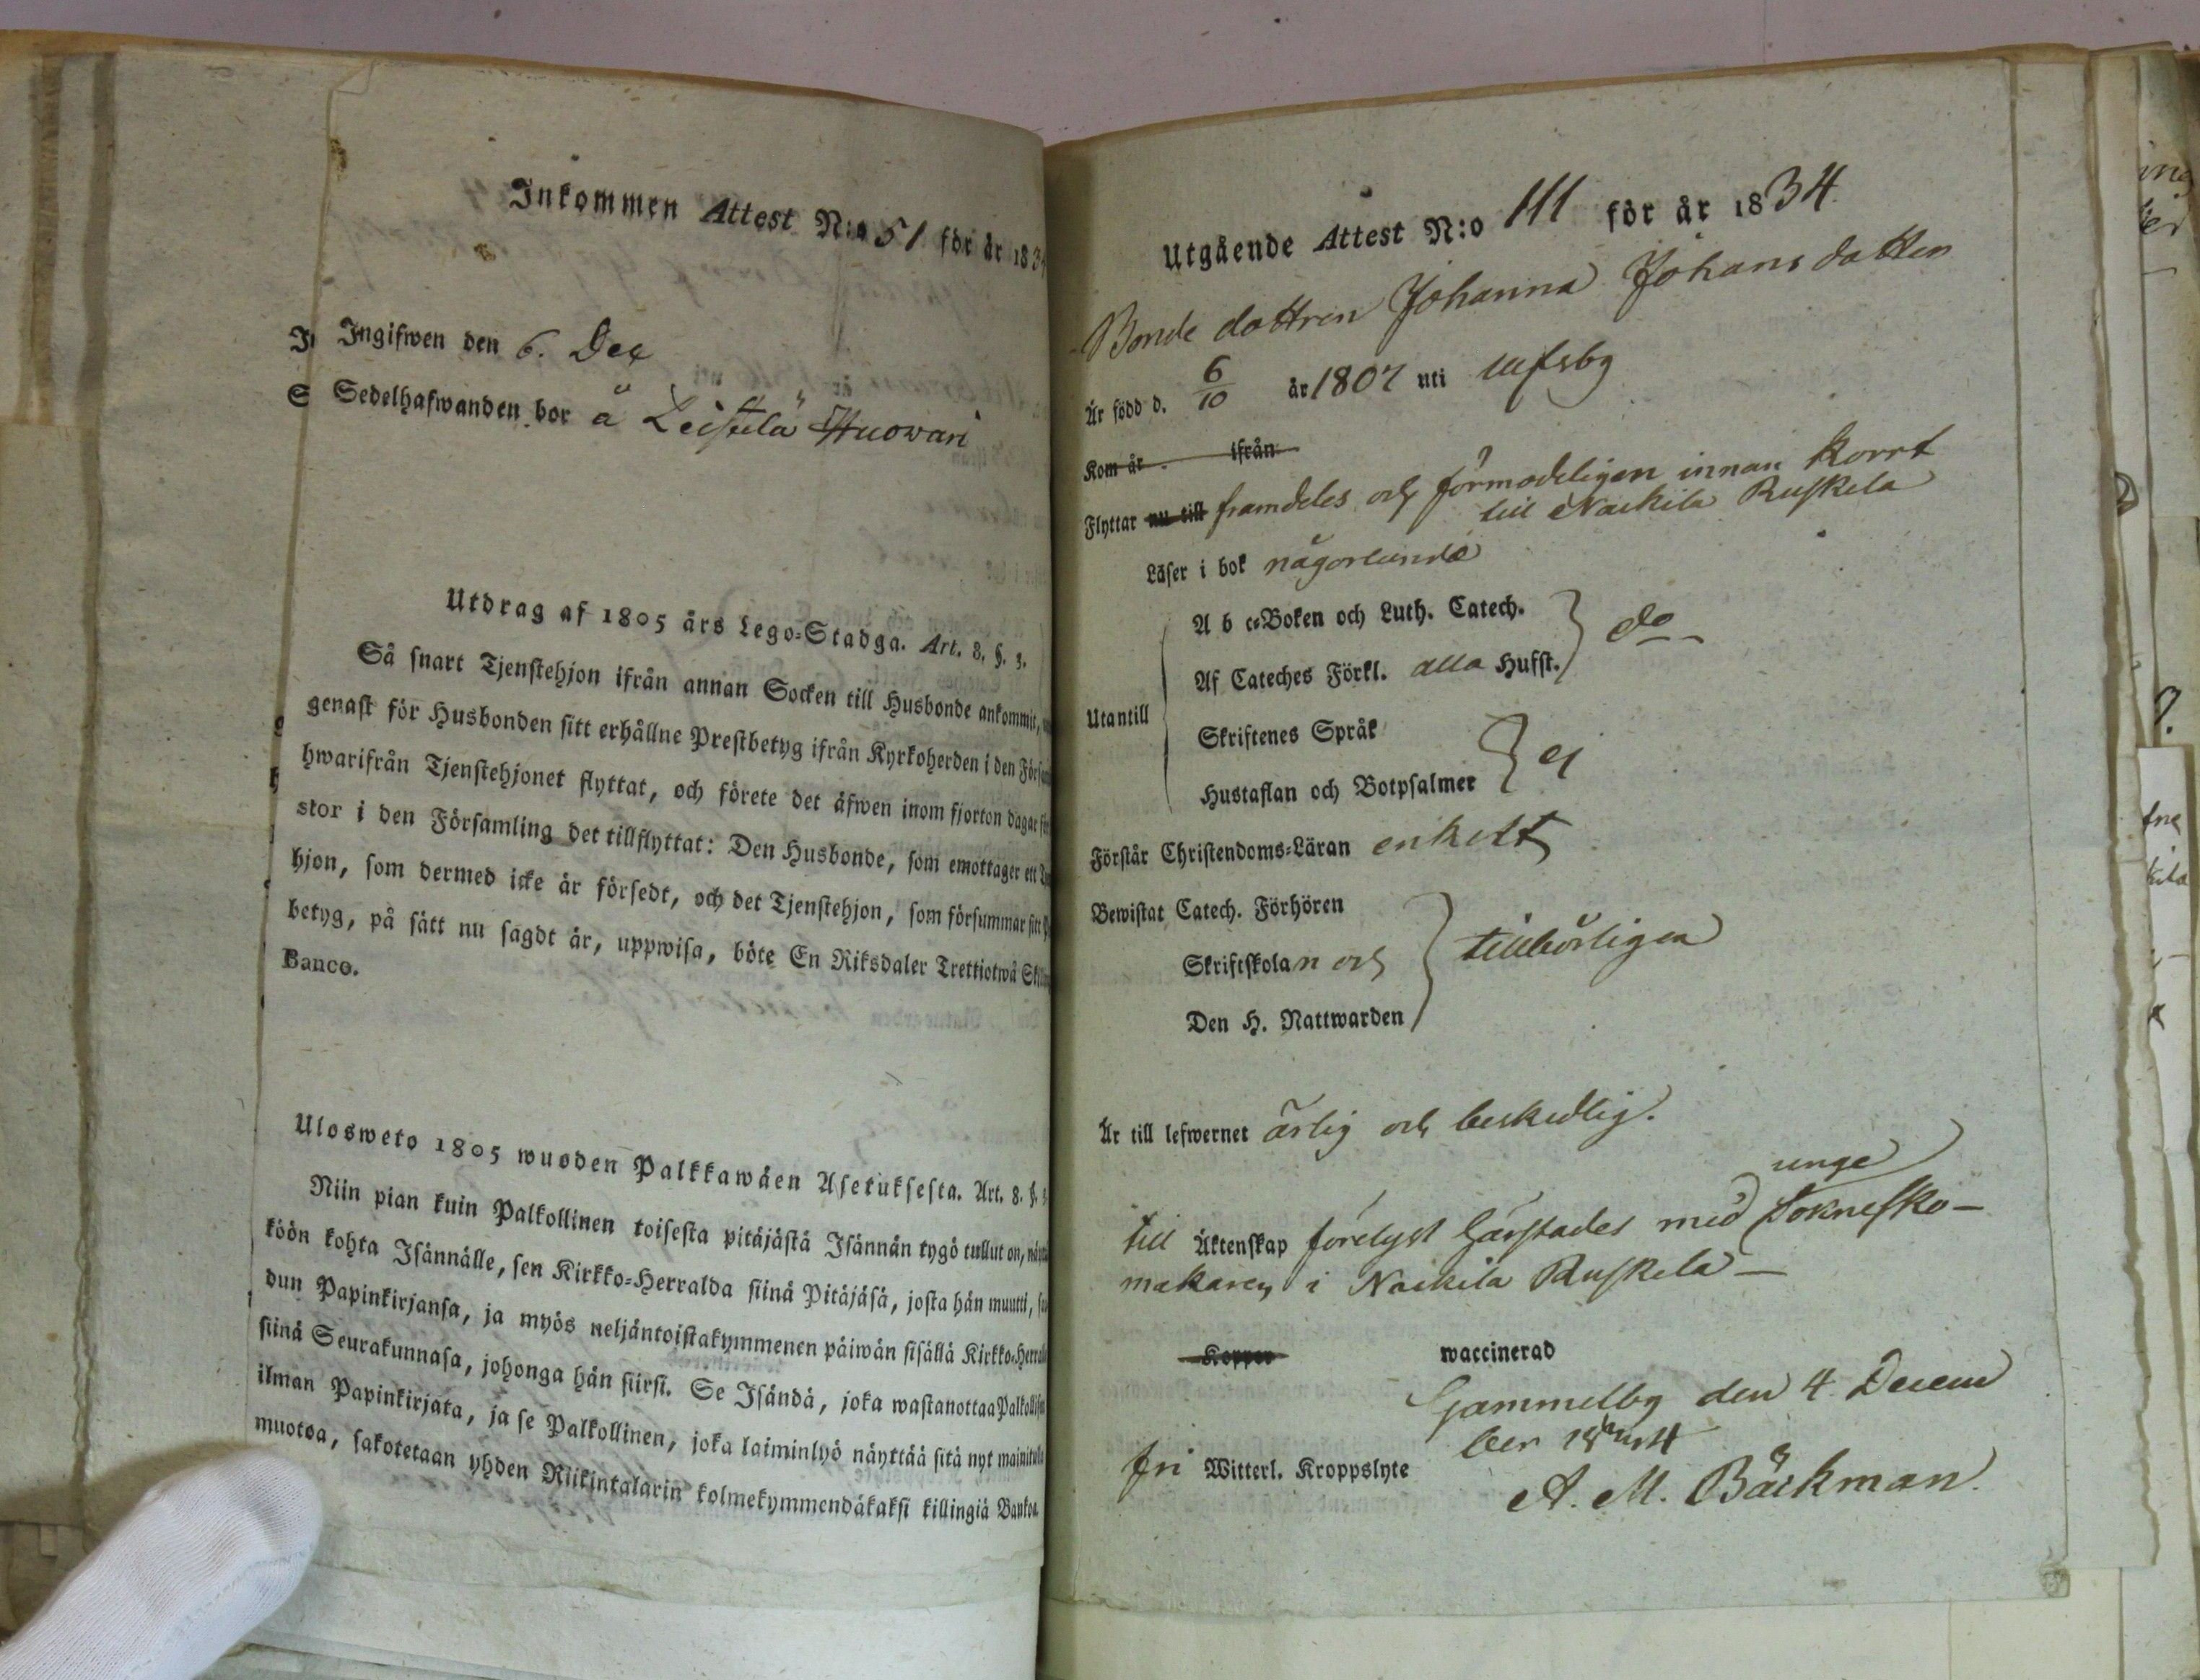 Inkommen Attest N:o 51 för år 183
Ingifwen den 6. Dec
Sedelhafwanden bor å Leistilä Huowari
Utdrag af 1805 års Lego-Stadga. Art. 8. §. 3.
Så snart Tjenstehjon ifrån annan Socken till Husbonde ankommit,
genast för Husbonden sitt erhållne Prestbetyg ifrån Kyrkoherden i den
hwarifrån Tjenstehjonet flyttat, och förete det äfwen inom fjorton dagar
stor i den Församling det tillflyttat: Den Husbonde, som emottager ett
hjon, som dermed icke är försedt, och det Tjenstehjon, som försummar sitt
betyg, på sätt nu sagdt är, uppwisa, böte En Riksdaler Trettiotwå
Banco.
Ulosweto 1805 wuoden Palkkawäen Asetuksesta. Art. 8. §.
Niin pian kuin Palkollinen toisesta pitäjästä Isännän tygö tullut on,
köön kohta Isännälle, sen Kirkko-Herralda siinä Pitäjäsä, josta hän muutti,
dun Papinkirjansa, ja myös neljäntoistakymmenen päiwän sisällä
siinä Seurakunnasa, johonga hän siirsi. Se Isändä, joka wastanottaa
ilman Papinkirjata, ja se Palkollinen, joka laiminlyö näyttää sitä nyt
muotoa, sakotetaan yhden Riikintalarin kolmekymmendäkaksi killingiä
Utgående Attest N:o 111 för år 1834.
Bonde dottren Johanna Johans dotter
Är född d. 6/10 år 1807 uti Ulfsby
Kom år ifrån
Flyttar nu till framdeles och förmodeligen innan kort
till Nackila Ruskela
Läser i bok någorlunda
A b c-Boken och Luth. Catech.
do
Af Cateches Förkl. alla Hufst.
Utantill
Skriftenes Språk
ej
Hustaflan och Botpsalmer
Förstår Christendoms-Läran enkelt
Bewistat Catech. Förhören
Skriftskolan och tillbörligen
Den H. Nattwarden
Är till lefwernet ärlig och beskedlig.
unge
till Äktenskap förelyst härstädes med Soknesko-
makaren i Nackila Ruskela
Koppor waccinerad
Gammelby den 4 Decem
ber
fri Witterl. Kroppslyte
A. M. Bäckman.